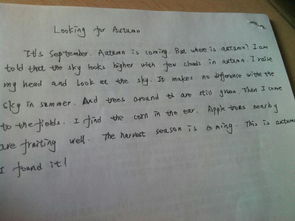 Looking for Autumn
It's September. Autumn is coming. But where is autumn? I am
told that the sky looks higher with few clouds in autumn. I raise
my head and look at the sky. It makes no difference with the
sky in summer. And trees around are still green. Then I come
to the fields. I find the corn in the ear. Apple trees nearby
are fruiting well. The harvest season is coming. This is autumn
I found it!